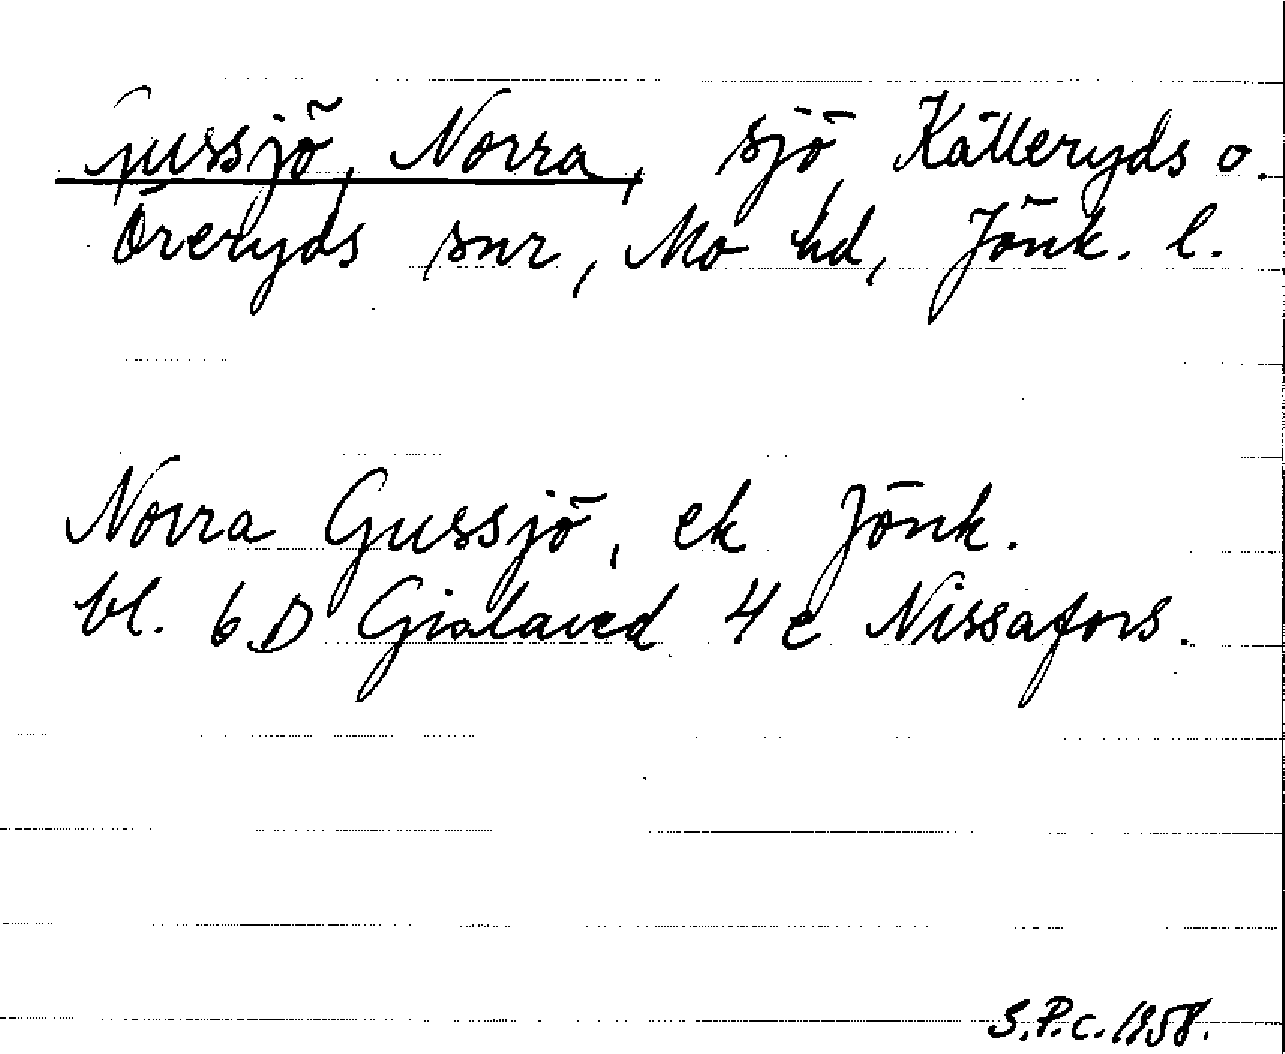 Gussjö, Norra, sjö, Källeryds o.
Öreryds snr, Mo hd, Jönk. l.
Norra Gussjö, ek Jönk.
bl. 6 D Gislaved 4 e Nissafors.
S.P.C. 1958.